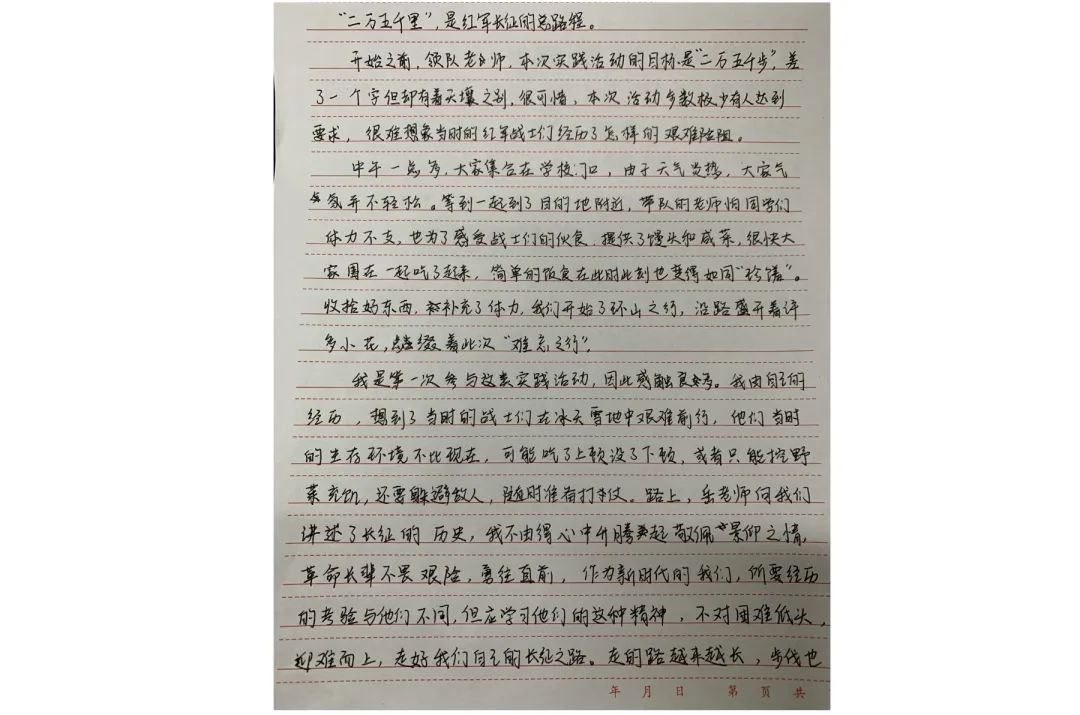 “二万五千里”,是红军长征的总路程。
开始之前,领队老师,本次实践活动的目标是“二万五千步”,差
了一个字但却有着天壤之别,很可惜,本次活动步数极少有人达到
要求,很难想象当时的红军战士们经历了怎样的艰难险阻。
中午一点多,大家集合在学校门口,由于天气炎热,大家气
氛并不轻松。等到一起到了目的地附近,带队的老师怕同学们
体力不支,也为了感受战士们的伙食,提供了馒头和咸菜,很快大
家围在一起吃了起来,简单的饭食在此时此刻也变得如同“珍馐”。
收拾好东西,补充了体力,我们开始了环山之行,沿路盛开着许
多小花,点缀着此次“难忘之行”,
我是第一次参与这类实践活动,因此感触良多。我由自己的
经历,想到了当时的战士们在冰天雪地中艰难前行,他们当时
的生存环境不比现在,可能吃了上顿没了下顿,或者只能挖野
菜充饥,还要躲避敌人,随时准备打仗。路上,岳老师向我们
讲述了长征的历史,我不由得心中升腾起敬佩景仰之情,
革命长辈不畏艰险,勇往直前,作为新时代的我们,所要经历
的考验与他们不同,但应学习他们的这种精神,不对困难低头,
迎难而上,走好我们自己的长征之路。走的路越来越长,步伐也
年 月 日 第 页 共